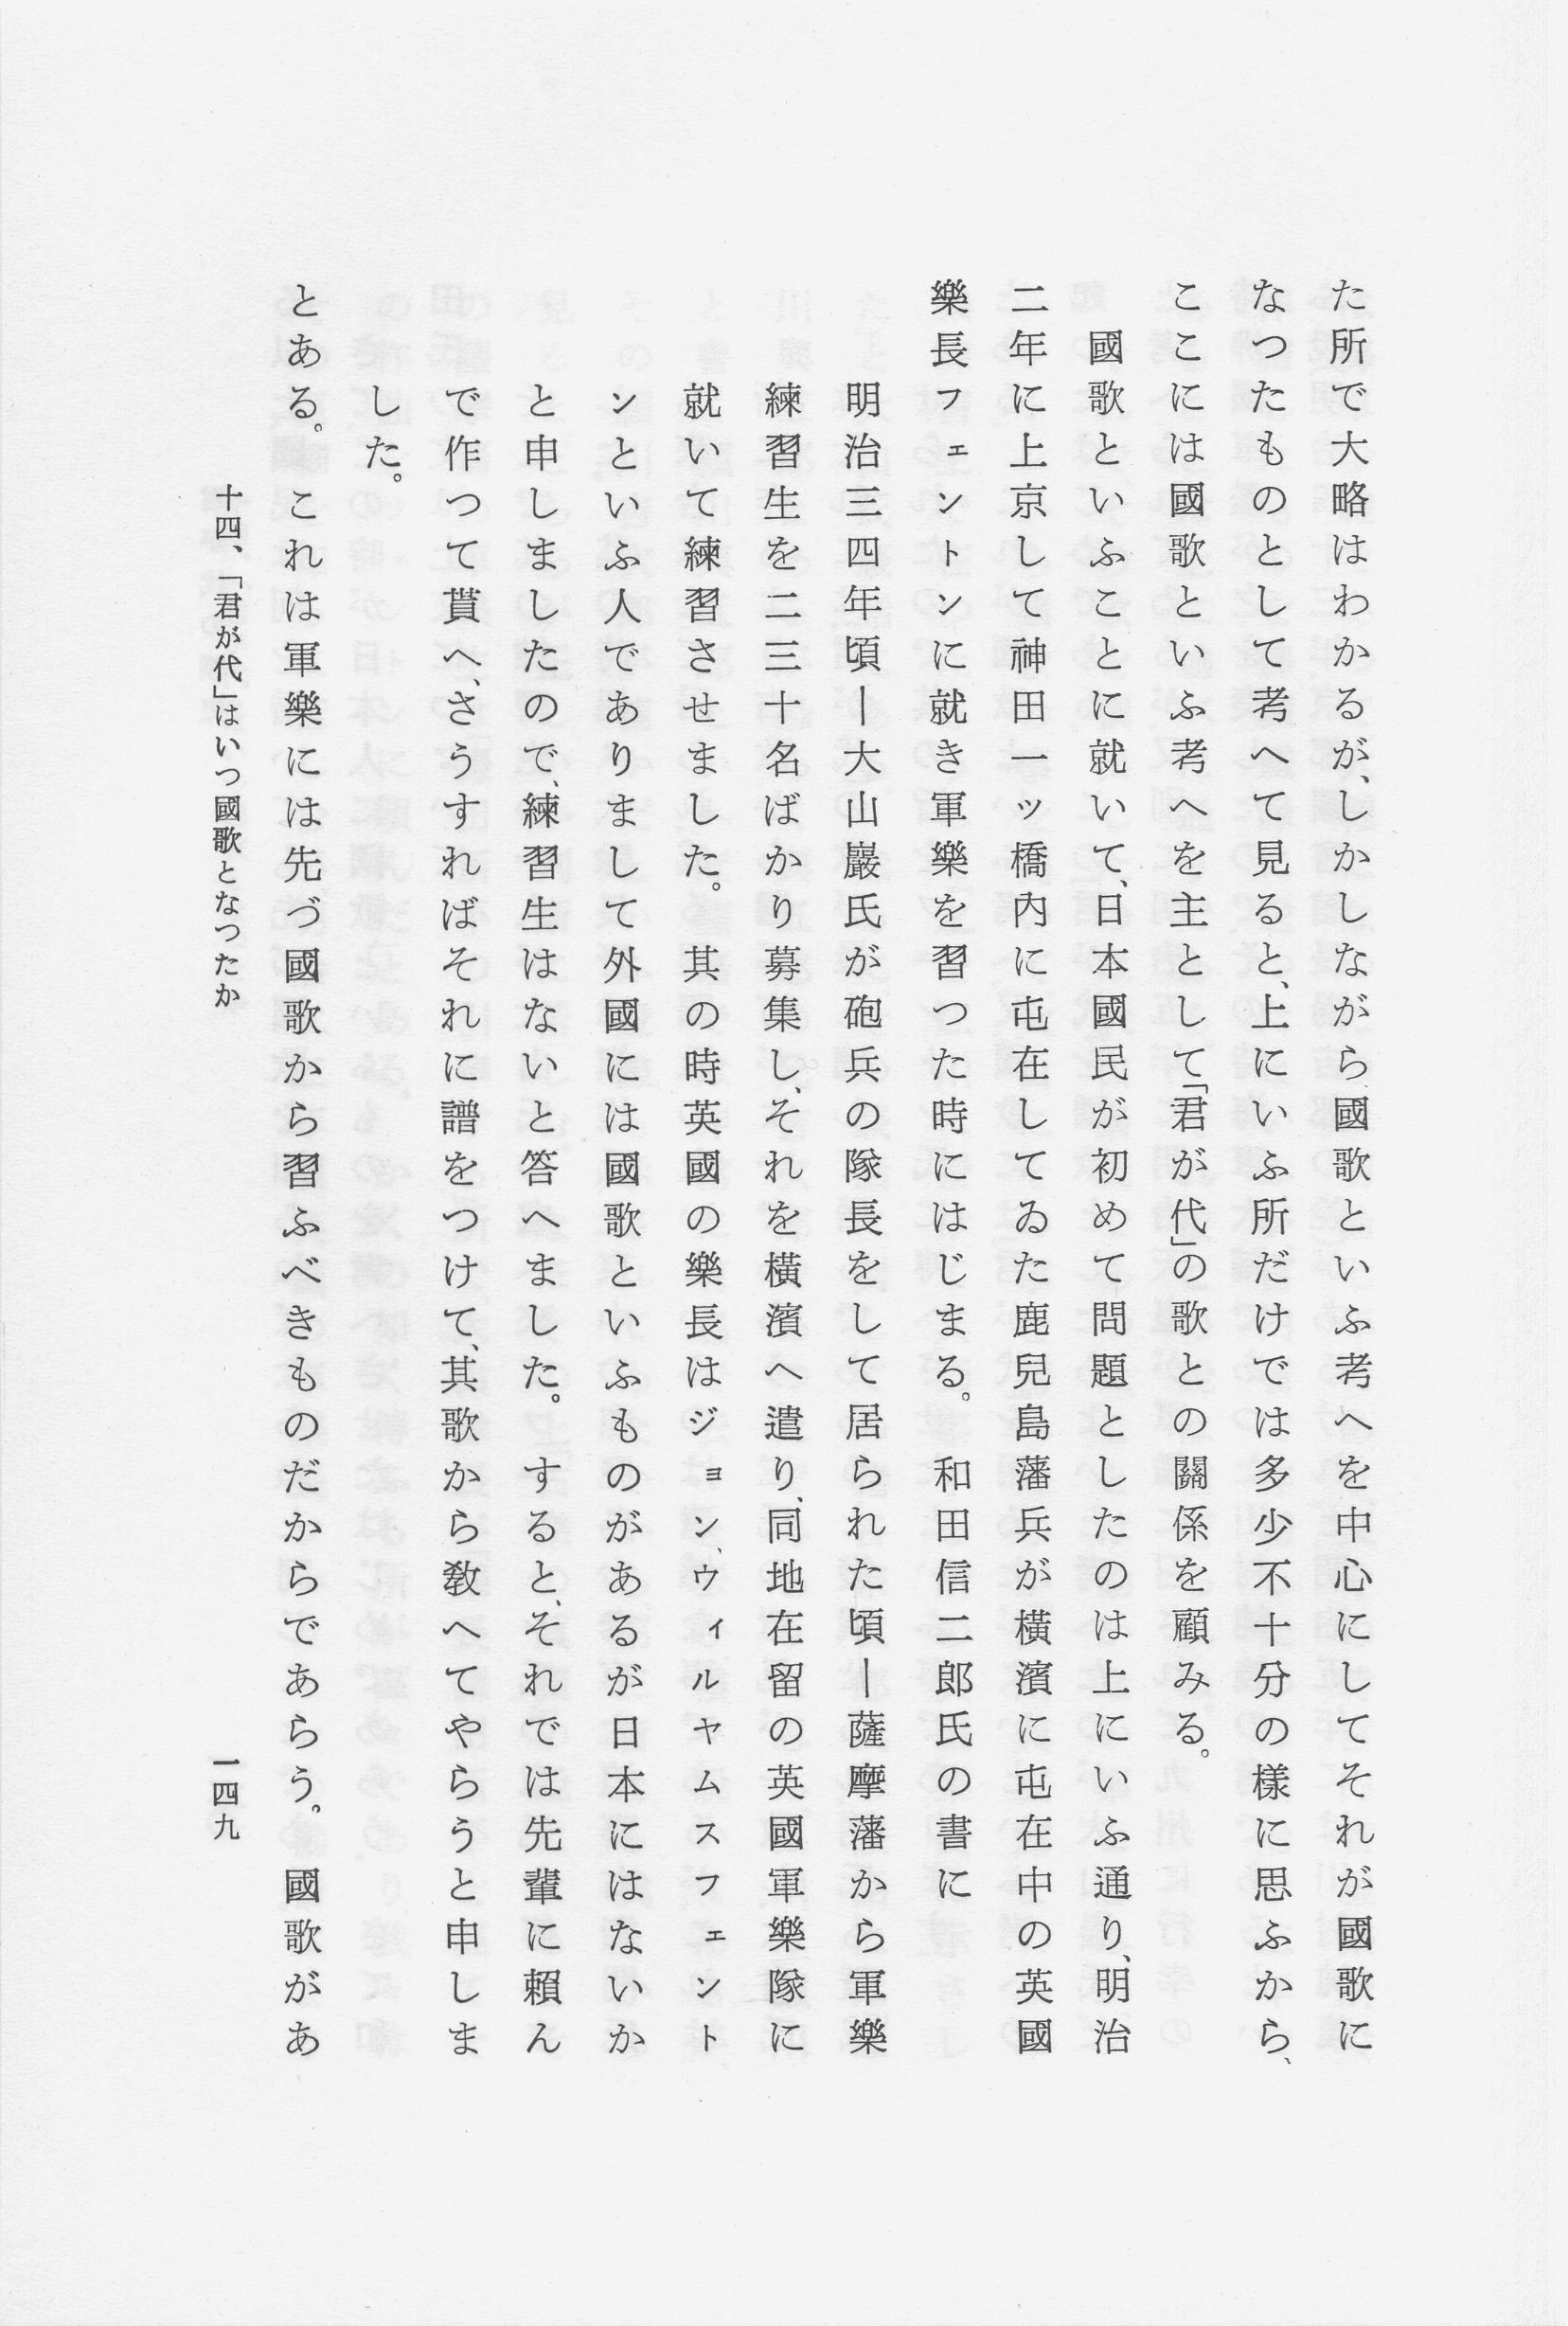 た所で大略はわかるが、しかしながら國歌といふ考へを中心にしてそれが國歌に
なつたものとして考へて見ると、上にいふ所だけでは多少不十分の樣に思ふから、
ここには國歌といふ考へを主として「君が代」の歌との關係を顧みる。
國歌といふことに就いて、日本國民が初めて問題としたのは上にいふ通り、明治
二年に上京して神田一ッ橋内に屯在してゐた鹿兒島藩兵が橫濱に屯在中の英國
樂長フェントンに就き軍樂を習つた時にはじまる。和田信二郎氏の書に
明治三四年頃―大山巖氏が砲兵の隊長をして居られた頃―薩摩藩から軍樂
練習生を二三十名ばかり募集し、それを橫濱へ遣り、同地在留の英國軍樂隊に
就いて練習させました。其の時英國の樂長はジョン、ウィルヤムスフェント
ンといふ人でありまして外國には國歌といふものがあるが日本にはないか
と申しましたので、練習生はないと答へました。すると、それでは先輩に賴ん
で作つて貰へ、さうすればそれに譜をつけて、其歌から敎へてやらうと申しま
した。
とある。これは軍樂には先づ國歌から習ふべきものだからであらう。國歌があ
十四、「君が代」はいつ國歌となつたか
一四九